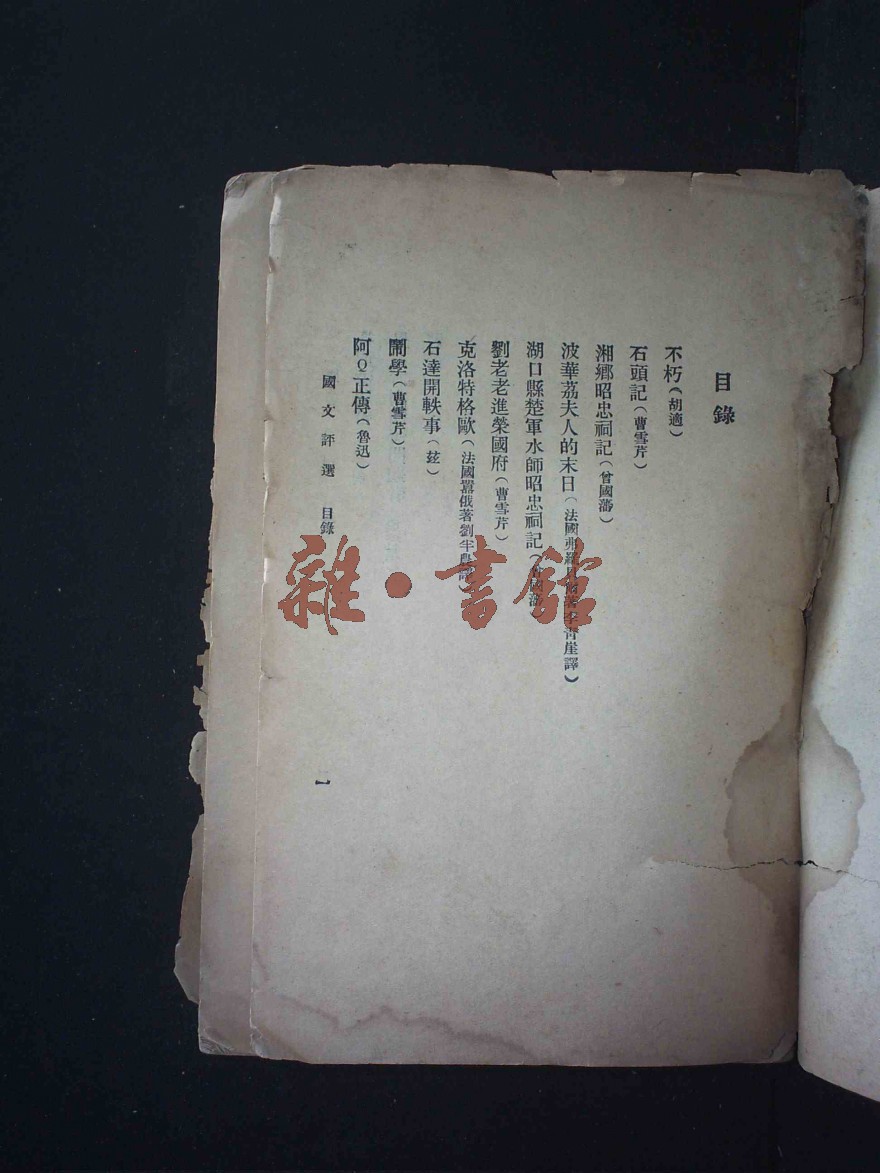 目錄
不朽(胡適)
石頭記(曹雪芹)
湘鄉昭忠祠記(曾國藩)
波華荔夫人的末日(法國弗羅 著李青崖譯)
湖口縣楚軍水師昭忠祠記(曾國藩)
劉老老進榮國府(曹雪芹)
克洛特格歐(法國囂俄著劉半農譯)
石達開軼事(玆)
鬧學(曹雪芹)
阿Q正傳(魯迅)
國文評選 目錄
一
雜·書館